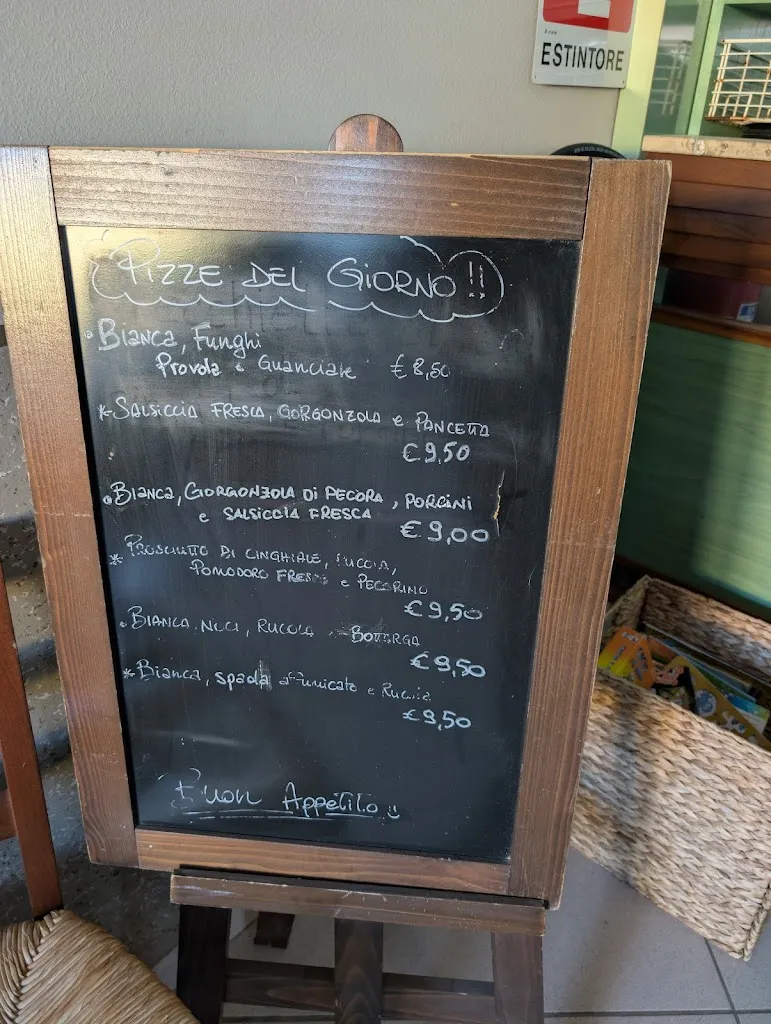 ESTINTORE
PIZZE DEL GIORNO!!
Bianca, Funghi
Provola e Guanciale € 8,50
* SALSICCIA FRESCA, GORGONZOLA e PANCETTA
€ 9,50
Bianca, GORGONZOLA DI PECORA, PORCINI
e SALSICCIA FRESCA € 9,00
* PROSCIUTTO DI CINGHIALE, RUCOLA,
POMODORO FRESCO e PECORINO
€ 9,50
BIANCA, NOCI, RUCOLA, BOTTARGA
€ 9,50
* Bianca, spada affumicato e Rucola
€ 9,50
Buon Appetito